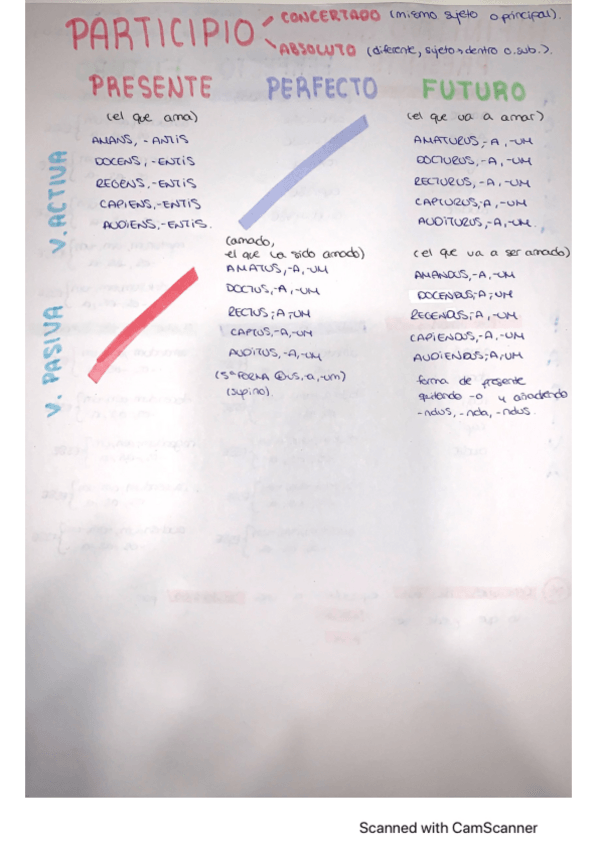 PARTICIPIO
CONCERTADO (mismo sujeto o principal).
ABSOLUTO (diferente, sujeto dentro o.sub.).
PRESENTE PERFECTO FUTURO
V. ACTIVA
(el que ama)
AMANS, -ANTIS
DOCENS, -ENTIS
REGENS, -ENTIS
CAPIENS, -ENTIS
AUDIENS, -ENTIS.
(el que va a amar)
AMATURUS, -A, -UM
DOCTURUS, -A, -UM
RECTURUS, -A, -UM
CAPTURUS, -A, -UM
AUDITURUS, -A, -UM.
V. PASIVA
(amado,
el que ha sido amado)
AMATUS, -A, -UM
DOCTUS, -A, -UM
RECTUS, -A, -UM
CAPTUS, -A, -UM
AUDITUS, -A, -UM
(5ª FORMA us, -a, -um)
(supino).
(el que va a ser amado)
AMANDUS, -A, -UM
DOCENDUS, -A, -UM
REGENDUS, -A, -UM
CAPIENDUS, -A, -UM
AUDIENDUS, -A, -UM
forma de presente
quitando -o y añadiendo
-ndus, -nda, -ndus.
Scanned with CamScanner